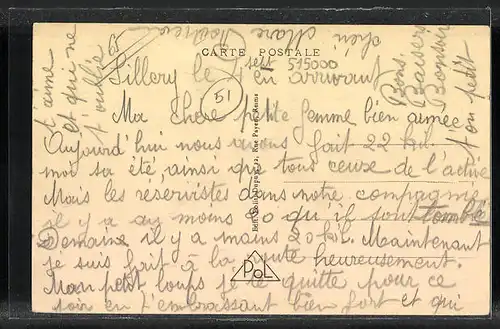 CARTE POSTALE
Sillery le 1 sept en arrivant
515000
51
Ma chere petite femme bien aimée
Aujourd'hui nous avons fait 22 kil.
moi sa été, ainsi que tous ceux de l'active
Mais les reservistes dans notre compagnie
il y a au moins 80 qu'il sont tombé
Demain il y a mains 20 kil. Maintenant
je suis fait à la route heureusement.
Mon petit loups je te quitte pour ce
soir en t'embrassant bien fort et qui
t'aime
et qui ne
t'oublie
chéri Marc
Bons
Baisers
Bonsoir
ton petit
Rue Payen, Reims
POL